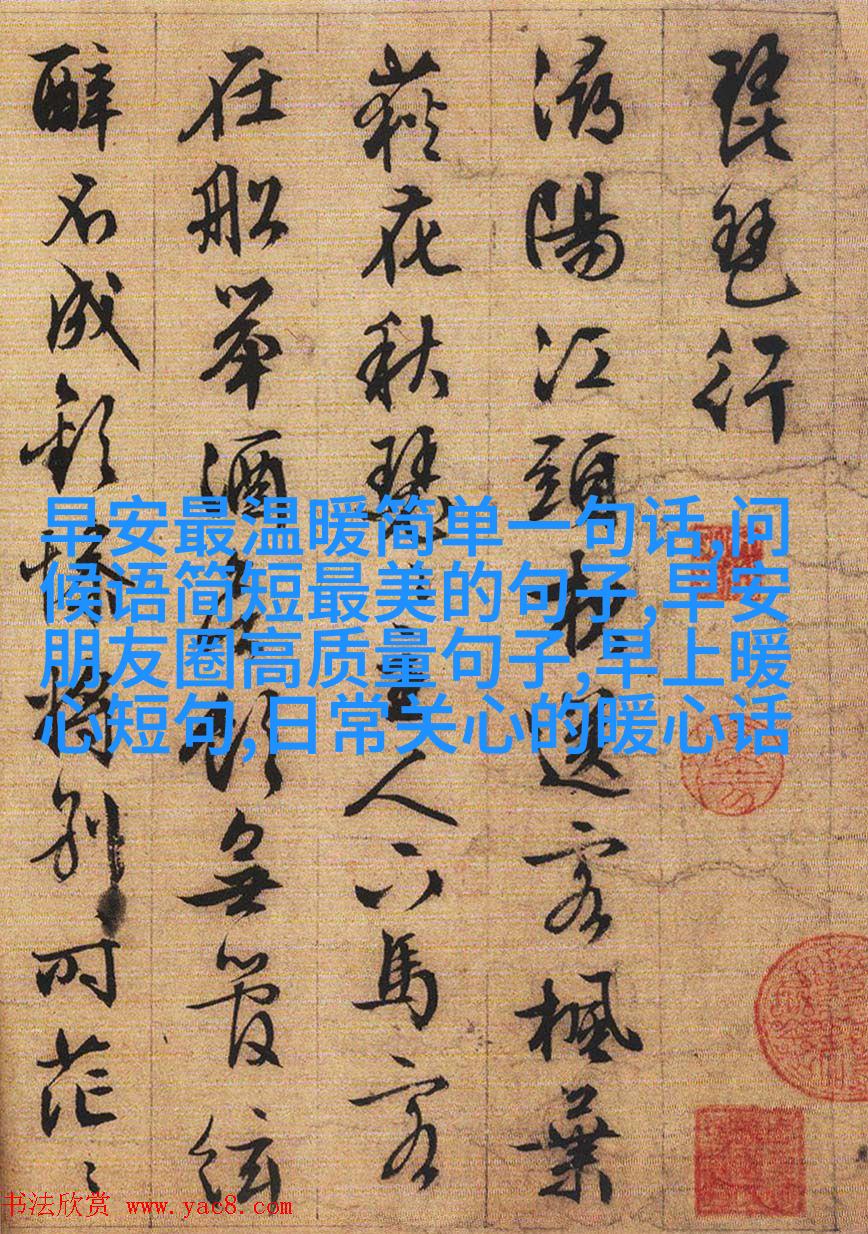 琵琶行
潯陽江頭夜送客楓葉
荻花秋瑟〻主人下馬客
在船舉酒欲飲無管絃
醉不成歡慘將別〻時茫〻
早安最温暖简单一句话,问
候语简短最美的句子,早安
朋友圈高质量句子,早上暖
心短句,日常关心的暖心话
书法欣赏 www.yac8.com